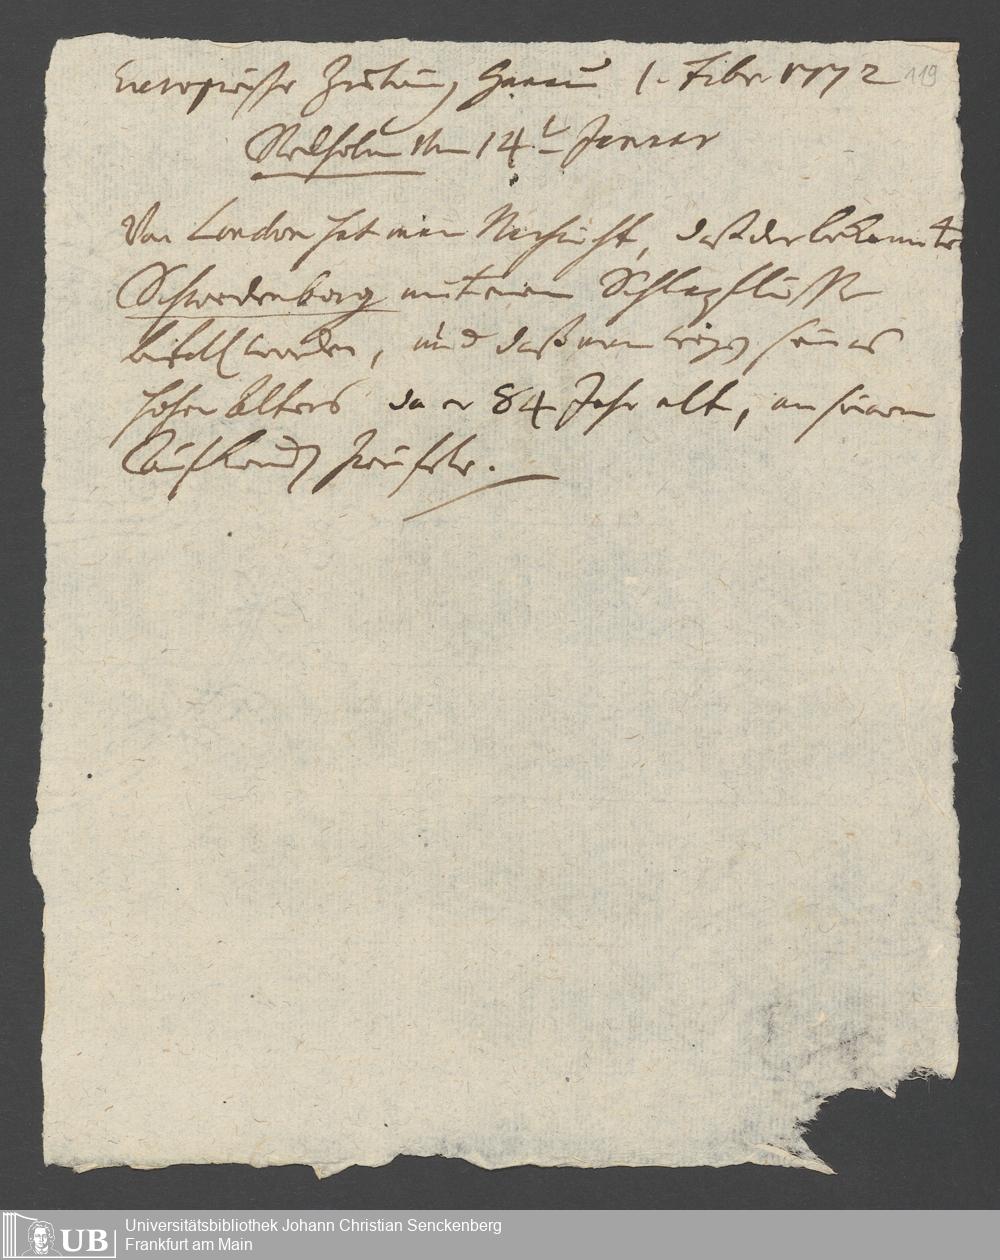 Europäische Zeitung Hanau 1. Febr. 1772
119
Stockholm vom 14t Januar
Von London hat man Nachricht, daß der bekannte
Schwedenborg mit einem Schlagflusse
befallen worden, und daß man wegen seines
hohen Alters da er 84 Jahr alt, an seinem
Aufkommen zweifele.
UB
Universitätsbibliothek Johann Christian Senckenberg
Frankfurt am Main